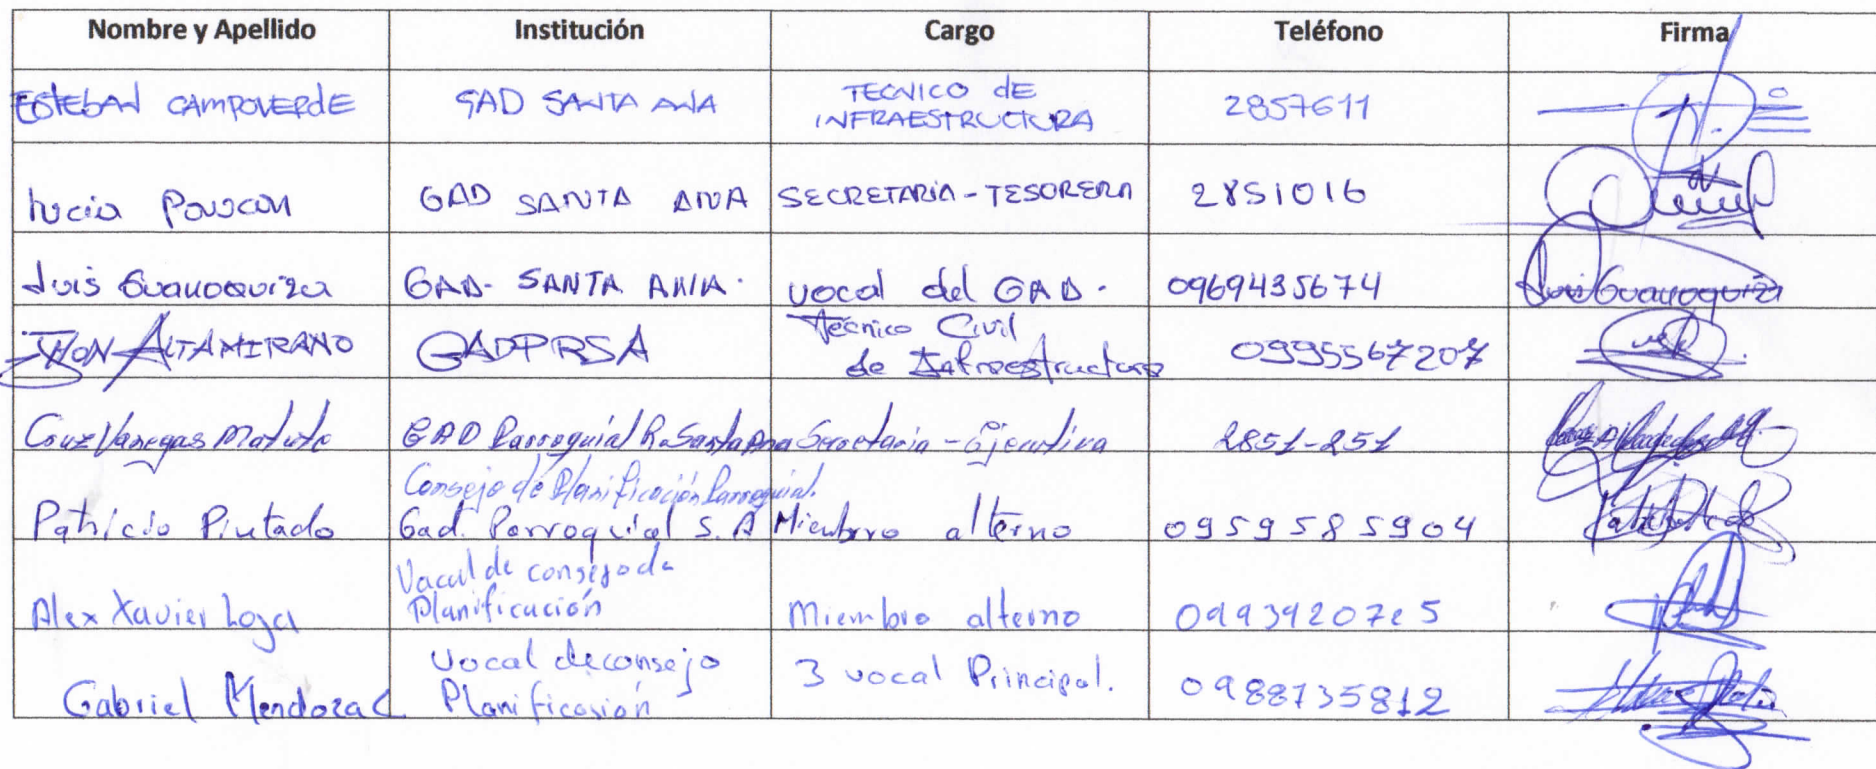 Nombre y Apellido Institución Cargo Teléfono Firma
ESTEBAN CAMPOVERDE GAD SANTA ANA TECNICO DE
INFRAESTRUCTURA 2857611
Lucía GAD SANTA ANA SECRETARIA-TESORERA 2851016
Luis Guanoquiza GAD. SANTA ANA. vocal del GAD. 0969435674 Luis Guanoquiza
JHON ALTAMIRANO GADPRSA Técnico Civil
de Infraestructura 0995567207
Cruz Vanegas Matute GAD Parroquial R. Santa Ana Secretaria - Ejecutiva 2851-251
Consejo de Planificación Parroquial.
Patricio Pintado Gad. Parroquial S. A Miembro alterno 0959585904
Vocal de consejo de
Alex Xavier Loja Planificación Miembro alterno
Vocal de consejo
Gabriel Mendoza C Planificasión 3 vocal Principal. 0988735812